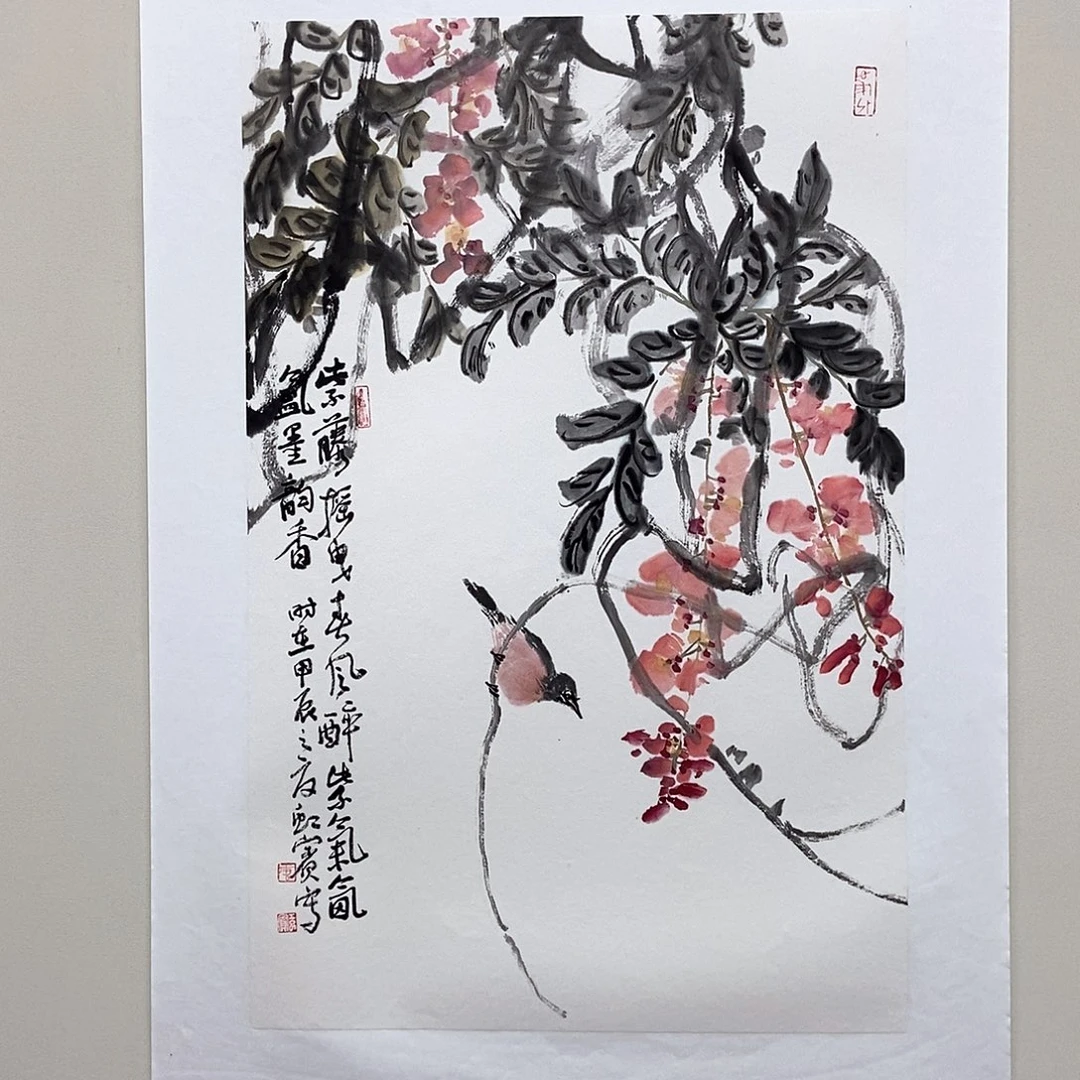 紫藤摇曳春风醉紫氣氤
氲墨韵香 时在甲辰之夏虹賓写